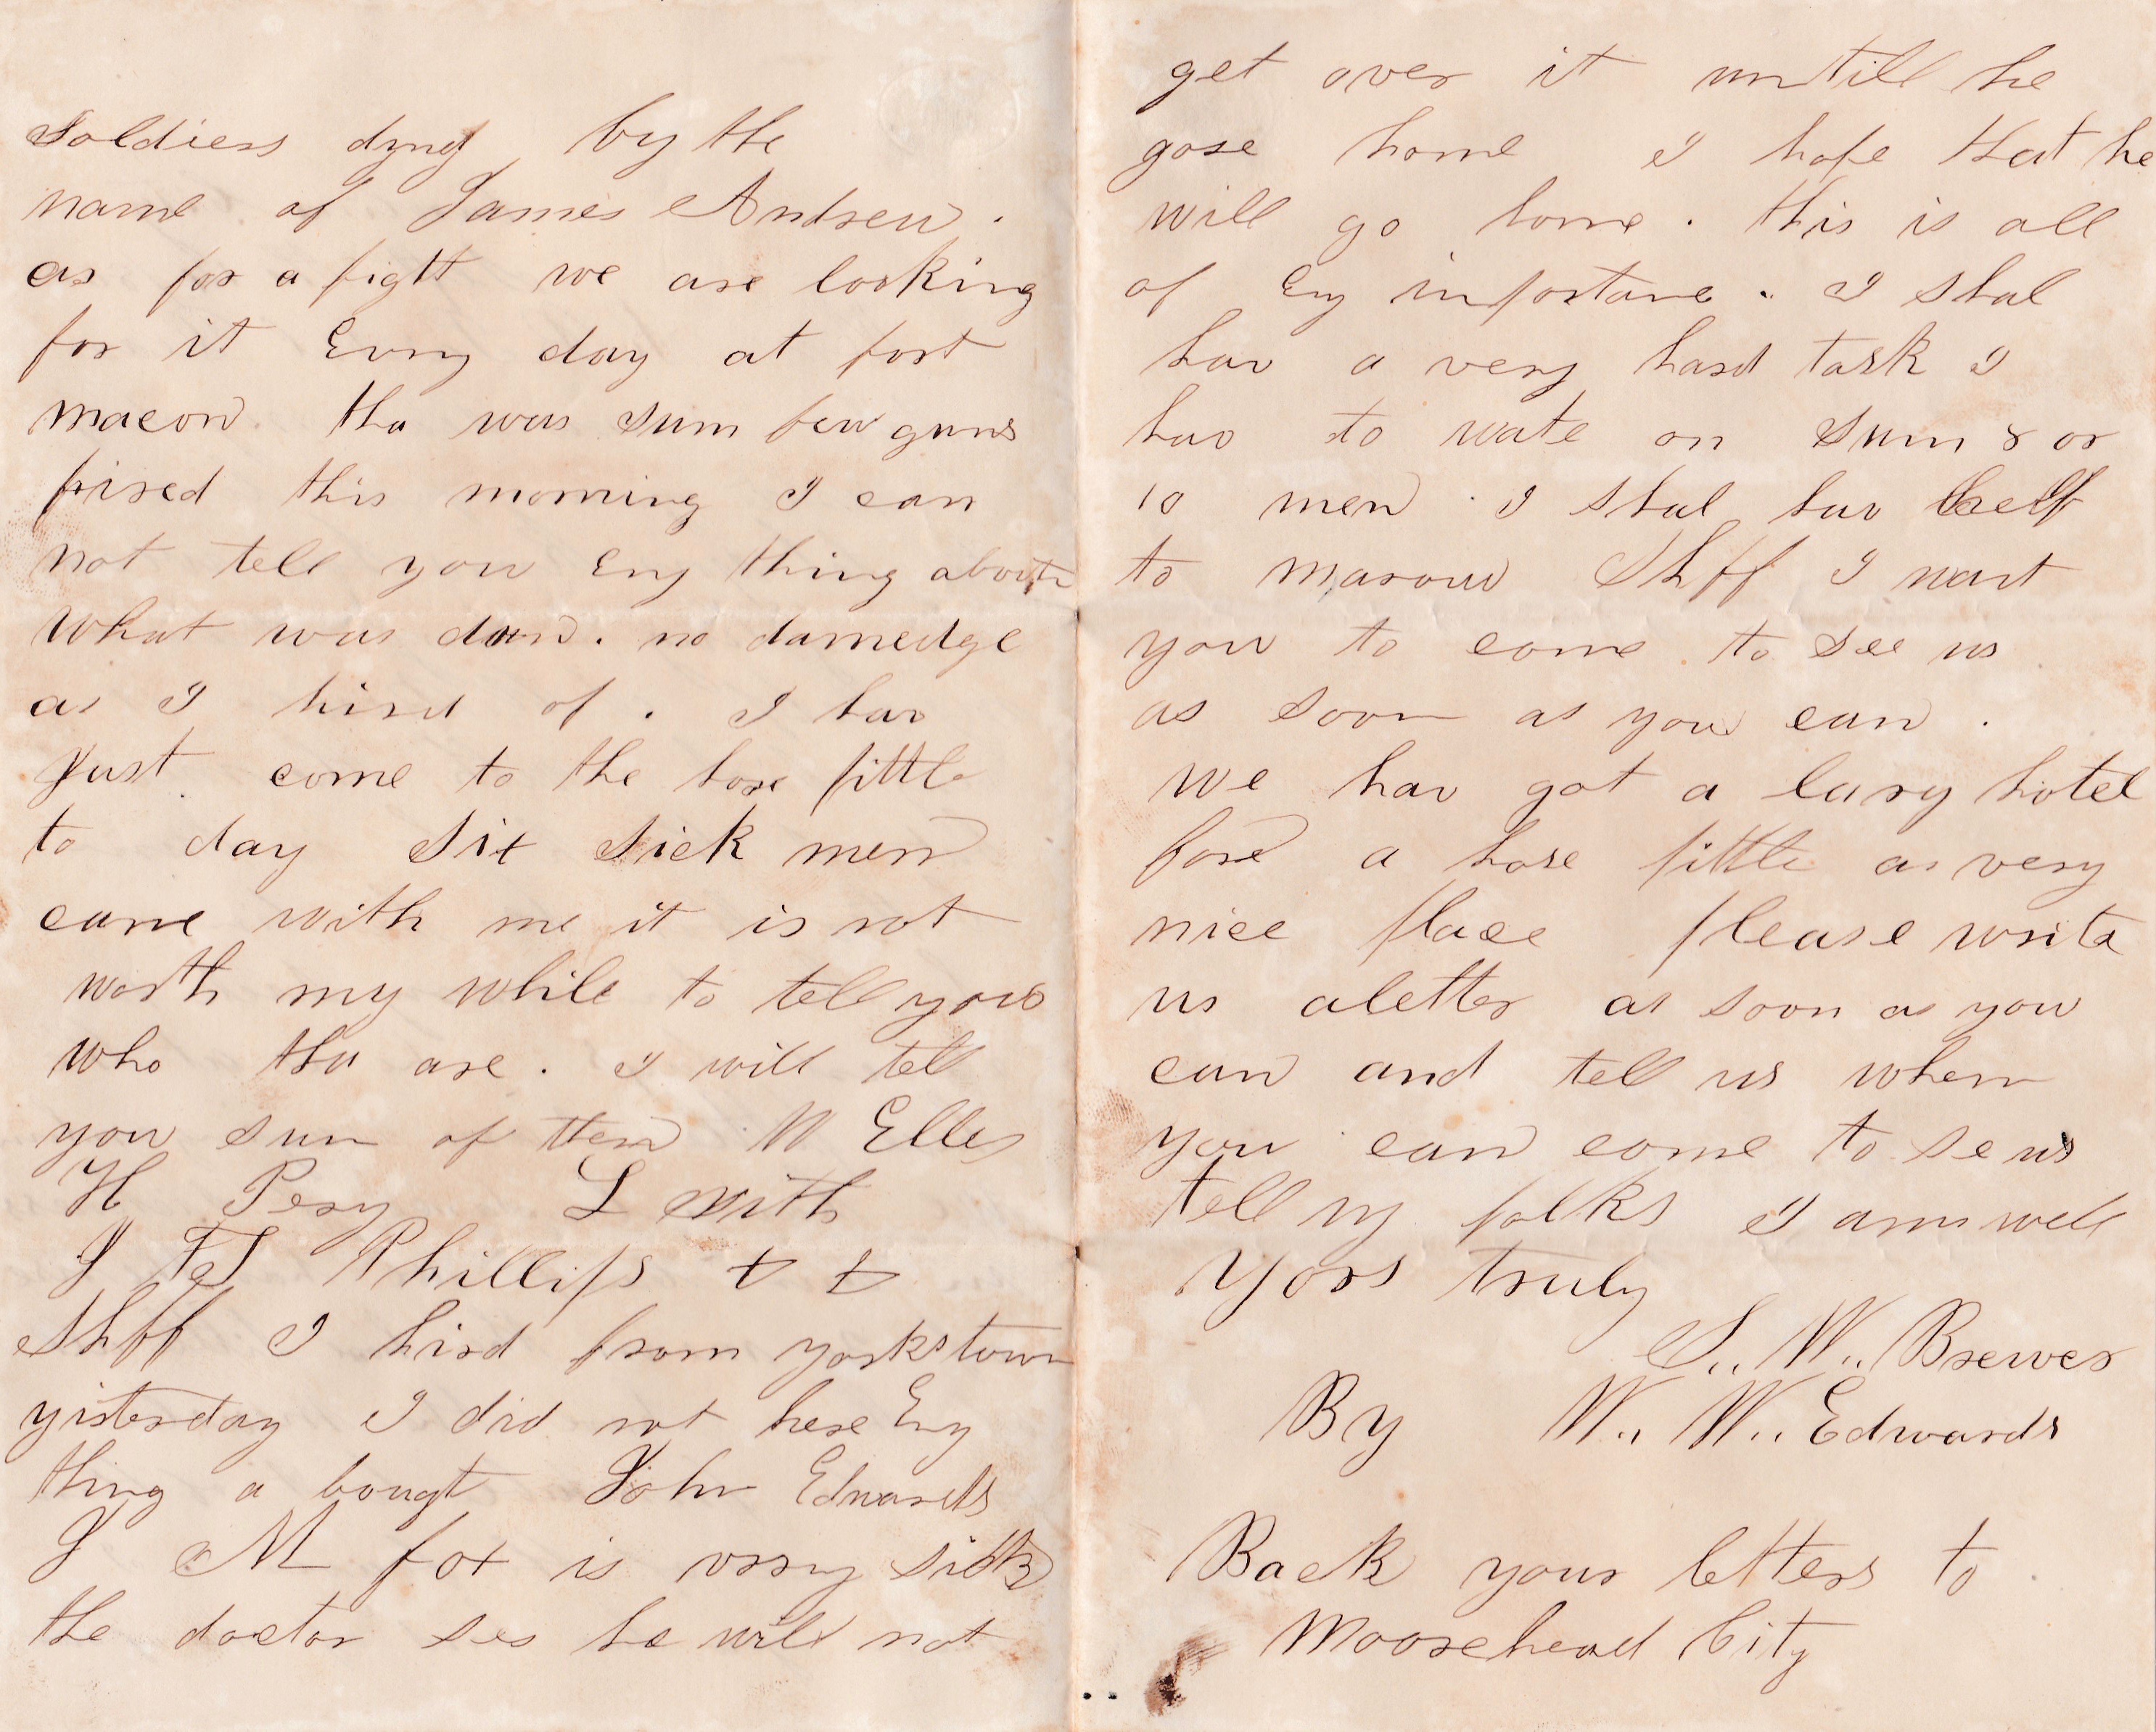 soldiers dyng by the
name of James Andrew.
as for a fight we are looking
for it Evry day at fort
macon tha was sum few guns
fired this morning I can
not tell you Eny thing about
what was dun. no damedge
as I hird of. I hav
Just come to the hose pittle
to day Six sick men
came with me it is not
worth my while to tell you
who tha are. I will tell
you sum of them W Elles
H Pery L
J Phillips
Shff I hird from yorkstown
yisterday I did not here Eny
thing a bougt John Edwards
J M fox is very sick
the doctor ses he will not
get over it untill he
gose home I hope that he
will go home. this is all
of Eny inportane. I shal
hav a very hard task I
hav to wate on sum 8 or
10 men I shal hav help
to marow Shff I want
you to come to see us
as soon as you can.
we hav got a larg hotel
fore a hose pittle a very
nice place please write
us aletter as soon as you
can and tell us when
you can come to se us
tell my folks I am well
yors truly
S.. W.. Brewer
By W.. W.. Edwards
Back your letters to
Moorehead City